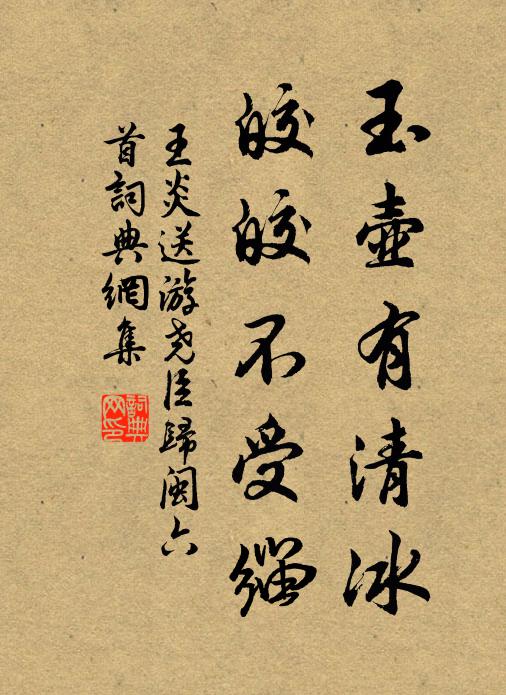 玉壺有清冰
皎皎不受緇
王炎送游堯臣歸閩六
首詞典網集
詞典網印